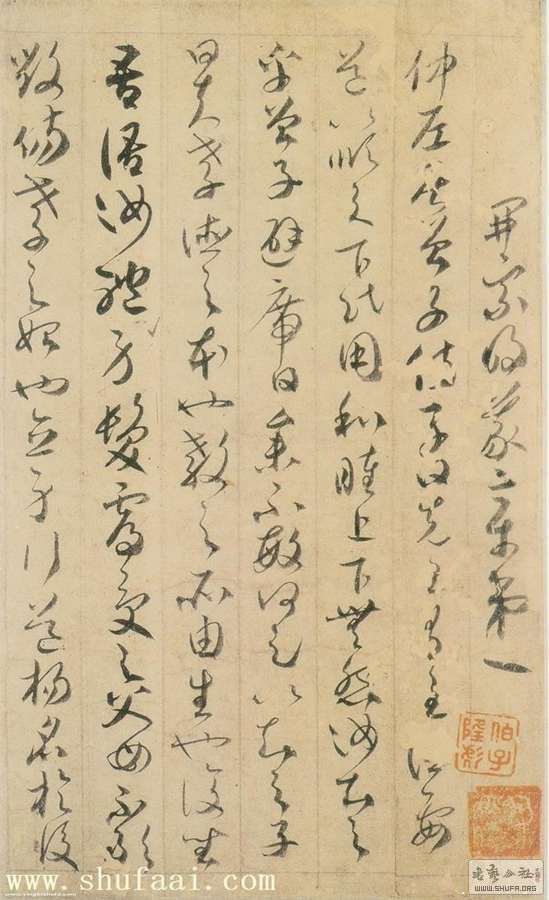 開宗明義章第一
仲尼居曾子侍子曰先王有至德要
道以順天下民用和睦上下無怨汝知之
乎曾子避席曰參不敏何足以知之子
曰夫孝德之本也教之所由生也復坐
吾語汝體身髮膚受之父母不敢
毀傷孝之始也立身行道揚名於後
www.shufaai.com
書藝公社
WWW.SHUFA.ORG